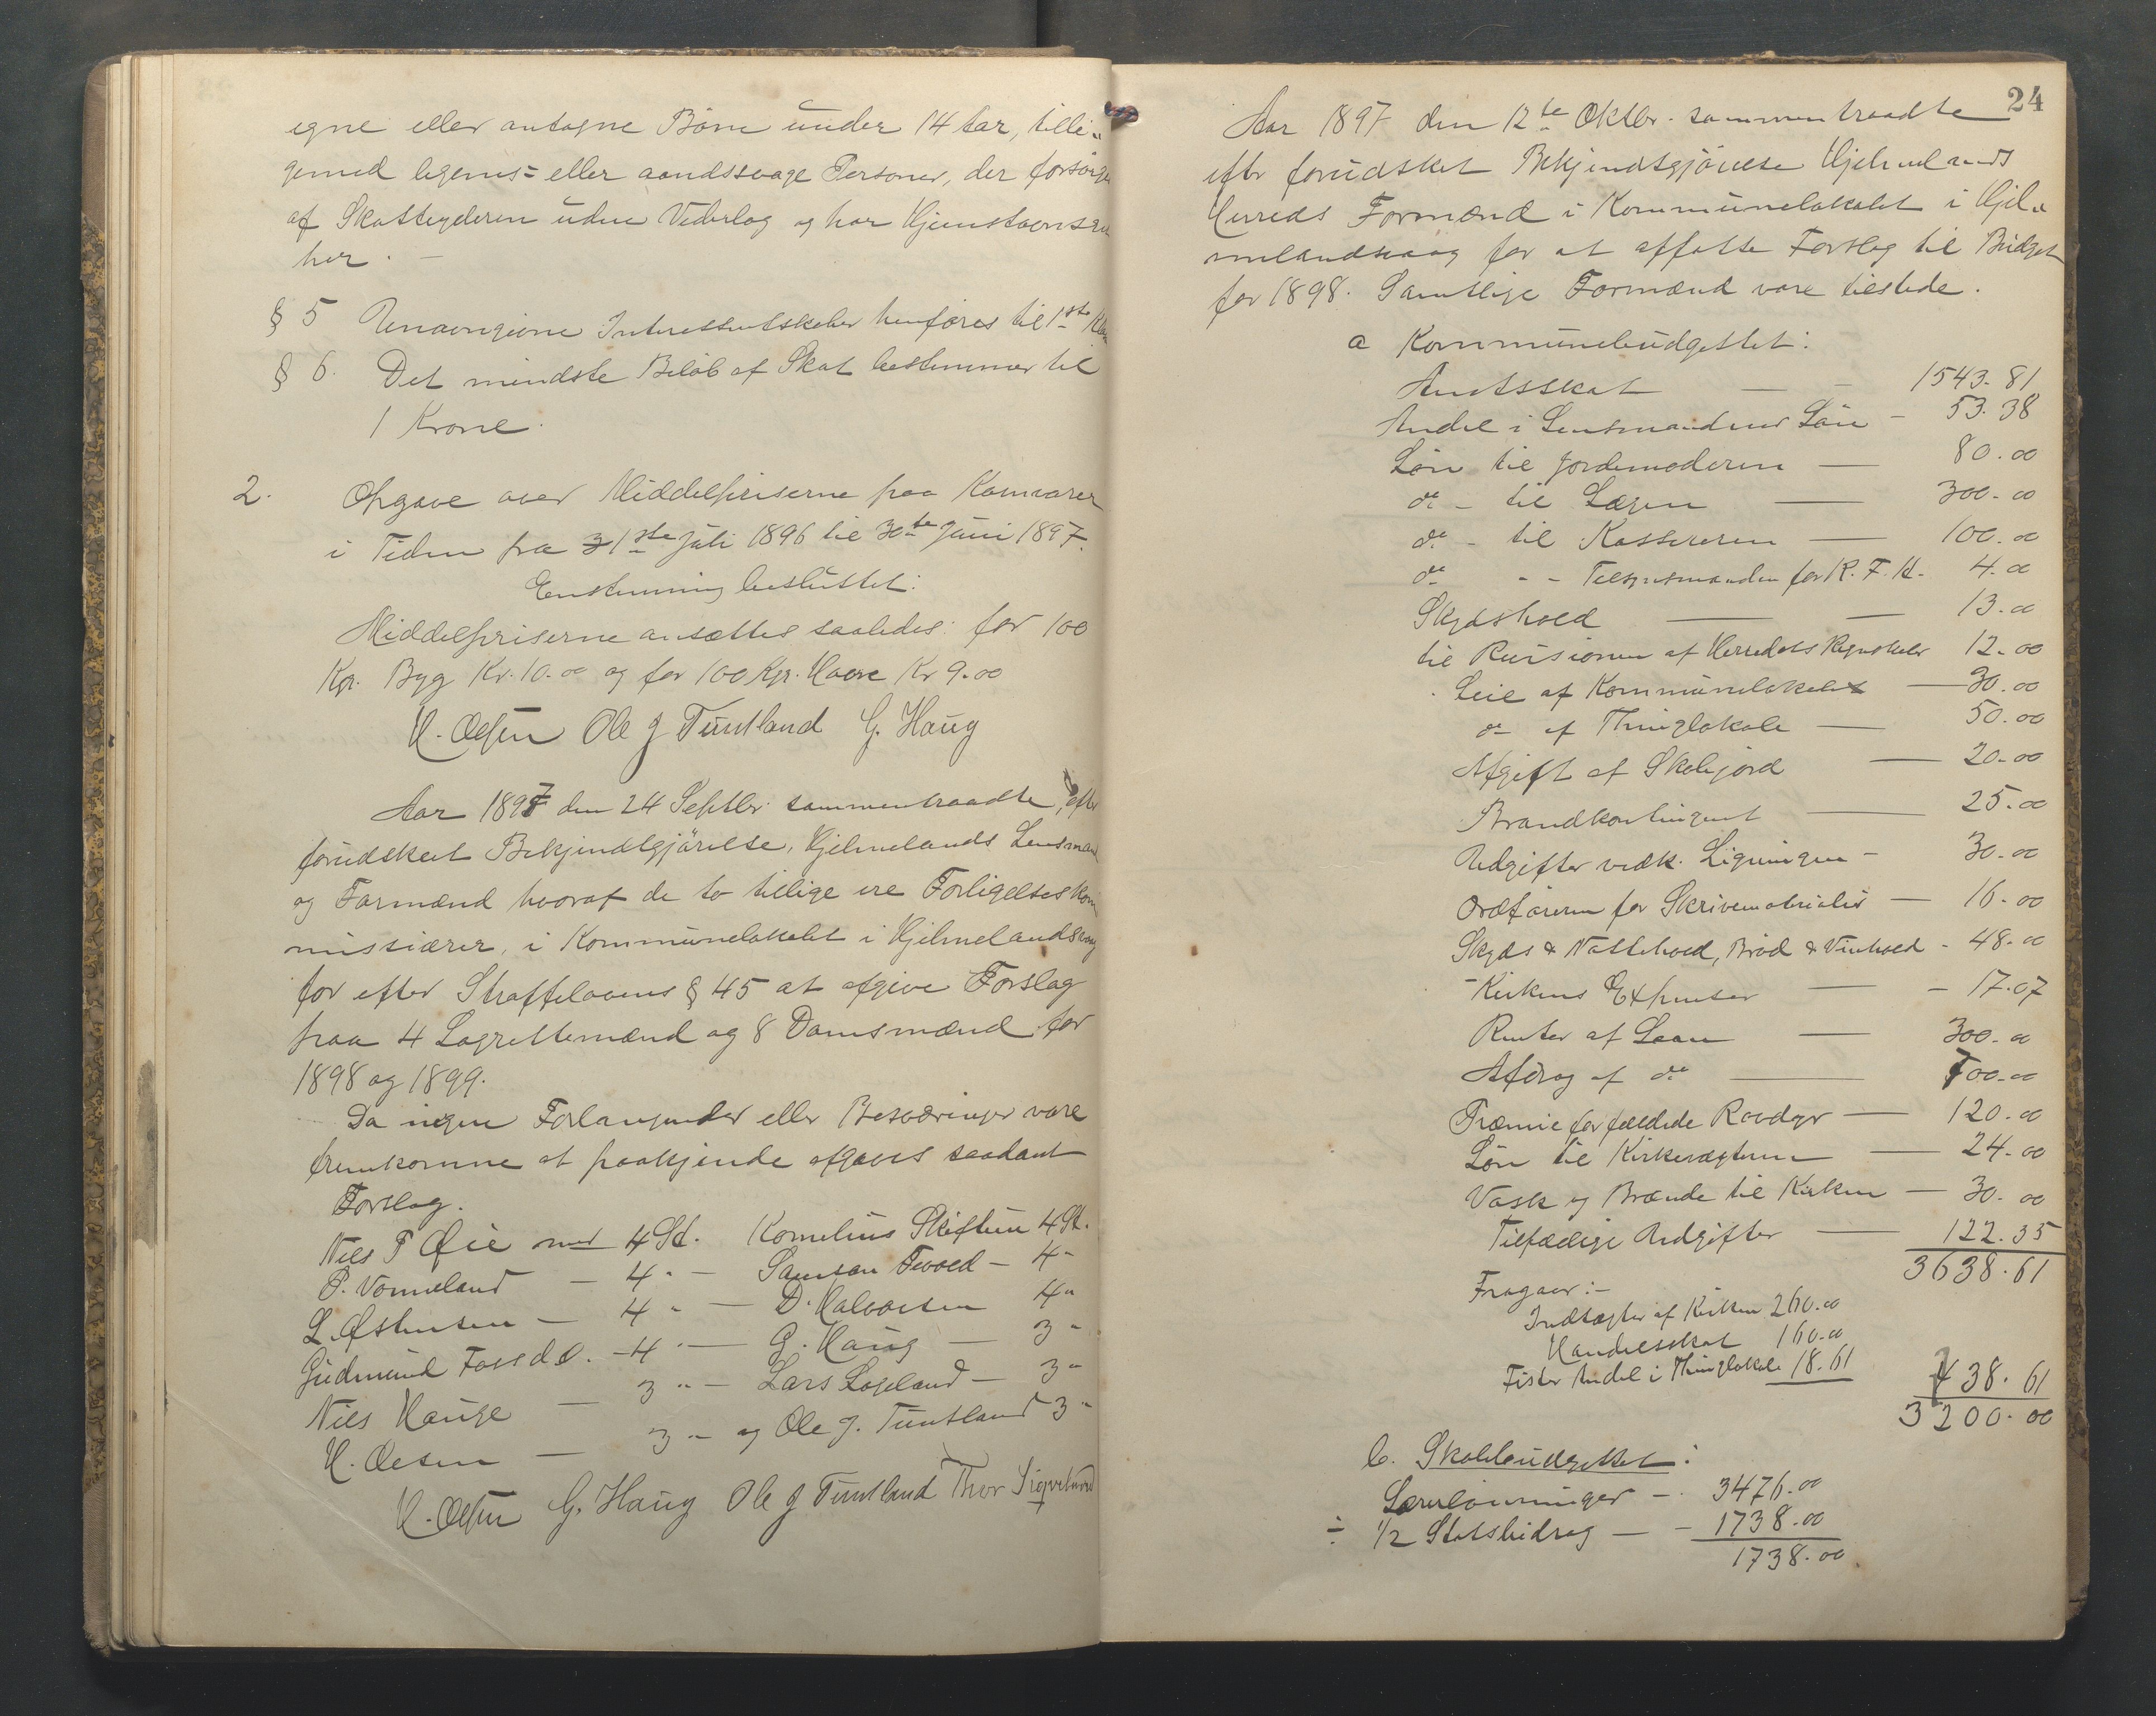 egne eller antagne Børn under 14 Aar, tilli-
gemed legems- eller aandssvage Personer, der forsørges
af Skatteyderen uden Vederlag og har Hjemstavnsret
her.
§ 5 Unavngivne Interessentskaber henføres til 1ste Kl.
§ 6. Det mindste Beløb af Skat bestemmes til
1 Krone.
2. Opgave over Middelpriserne paa Kornvarer
i Tiden fra 1ste Juli 1896 til 30te Juni 1897.
Enstemmig besluttet:
Middelpriserne ansættes saaledes: for 100
Kgr. Byg Kr. 10.00 og for 100 Kgr. Havre Kr 9.00
H. Olsen Ole J Tuntland G. Haug
Aar 1897 den 24 Septbr. sammentraadte, efter
forudskeet Bekjendtgjørelse, Hjelmelands Lensmand
og Formænd hvoraf de to tillige ere Forligelseskom
missiærer, i Kommunelokalet i Hjelmelandsvaag
for efter Straffelovens § 45 at afgive Forslag
paa 4 Lagrettemænd og 8 Domsmænd for
1898 og 1899.
Da ingen Forlangender eller Besværinger vare
fremkomne at paakjende afgaves saadant
Forslag.
Nils P Øie med 4 St. Kornelius Skiftun 4 St.
P. Vormeland – 4 " – Samson Tveed – 4 "
L. Østensen – 4 " – D. Halvorsen 4 "
Gudmund Fosså . – 4 " – G. Haug – 3 "
Nils Hauge – 3 " – Lars Lageland – 3 "
H. Olsen – 3 " – og Ole J. Tuntland 3 "
H. Olsen G. Haug Ole J Tuntland Thor Sigvelund
24
Aar 1897 den 12te Oktbr. sammentraadte
efter forudskeet Bekjendtgjørelse Hjelmelands
Herreds Formænd i Kommunelokalet i Hjel-
melandsvaag for at affatte Forslag til Budget
for 1898. Samtlige Formænd vare tilstede.
a Kommunebudgettet:
Amtsskat – – 1543.81
Andel i Lensmandens Løn – 53.38
Løn til Jordemoderen – 80.00
do – til Lægen – 300.00
do – til Kassereren – 100.00
do – – Tilsynsmanden for K. F. H. 4.00
Skydshold – – 13.00
til Revisionen af Herredets Regnskaber 12.00
Leie af Kommunelokalet – 30.00
do af Thinglokale – 50.00
Afgift af Skolejord – 20.00
Brandkontingent – 25.00
Udgifter vedk. Ligningen – 30.00
Ordføreren for Skrivematerialier – 16.00
Skyds & Nattehold, Brød & Vinhold – 48.00
Kirkens Expenser – – 17.07
Renter af Laan – 300.00
Afdrag af do – 700.00
Præmie for fældede Rovdyr – 120.00
Løn til Kirkevægteren – 24.00
Vask og Brænde til Kirken – 30.00
Tilfældige Udgifter – 122.35
3638.61
Fragaar:–
Indtægter af Kirken 260.00
Handelsskat 160.00
Fister Andel i Thinglokale 18.61 438.61
3200.00
b. Skolebudgettet:
Lærerlønninger – 3476.00
÷ 1/2 Statsbidrag – – 1738.00
1738.00